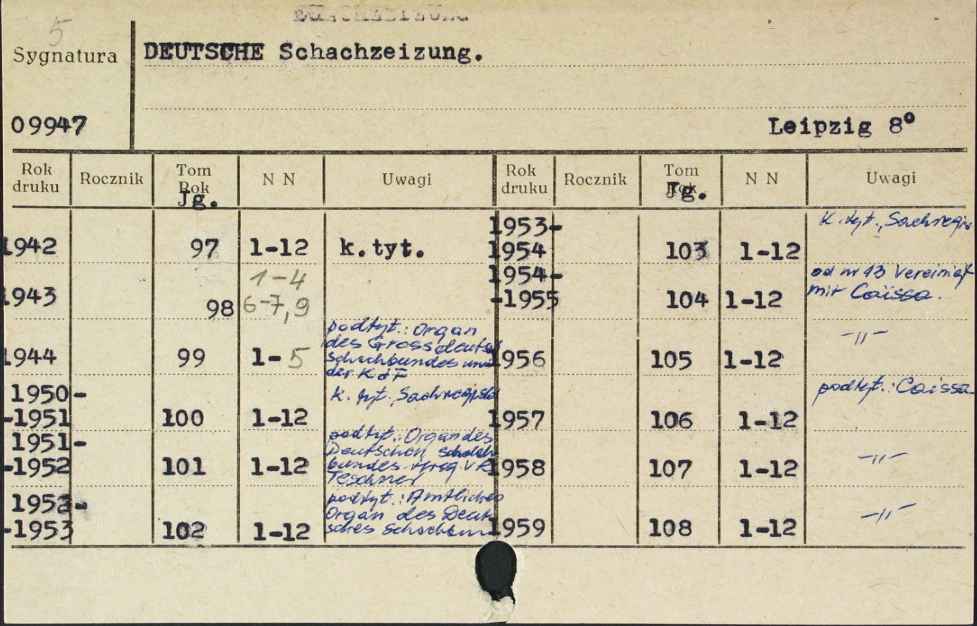 5
Sygnatura
DEUTSCHE Schachzeizung.
09947
Leipzig 8°
Rok druku Rocznik Tom Rok Jg. N N Uwagi Rok druku Rocznik Tom Rok Jg. N N Uwagi
1942 97 1-12 k.tyt.
1943 98 1-4
6-7,9
1944 99 1-5 podtyt.: Organ
des Grossdeutsch
Schachbundes und
der KdF
1950-
-1951 100 1-12 k. tyt., Sachregister
1951-
-1952 101 1-12 podtyt.: Organ des
Deutschen Schach
bundes. Hrsg. v. R.
Teschner
1952-
-1953 102 1-12 podtyt.: Amtliches
Organ des Deut
sches Schachbun
1953-
1954 103 1-12 k. tyt., Sachregis
1954-
-1955 104 1-12 od nr 13 Vereinigt
mit Caissa.
1956 105 1-12 -"-
1957 106 1-12 podtyt.: Caissa
1958 107 1-12 -"-
1959 108 1-12 -"-